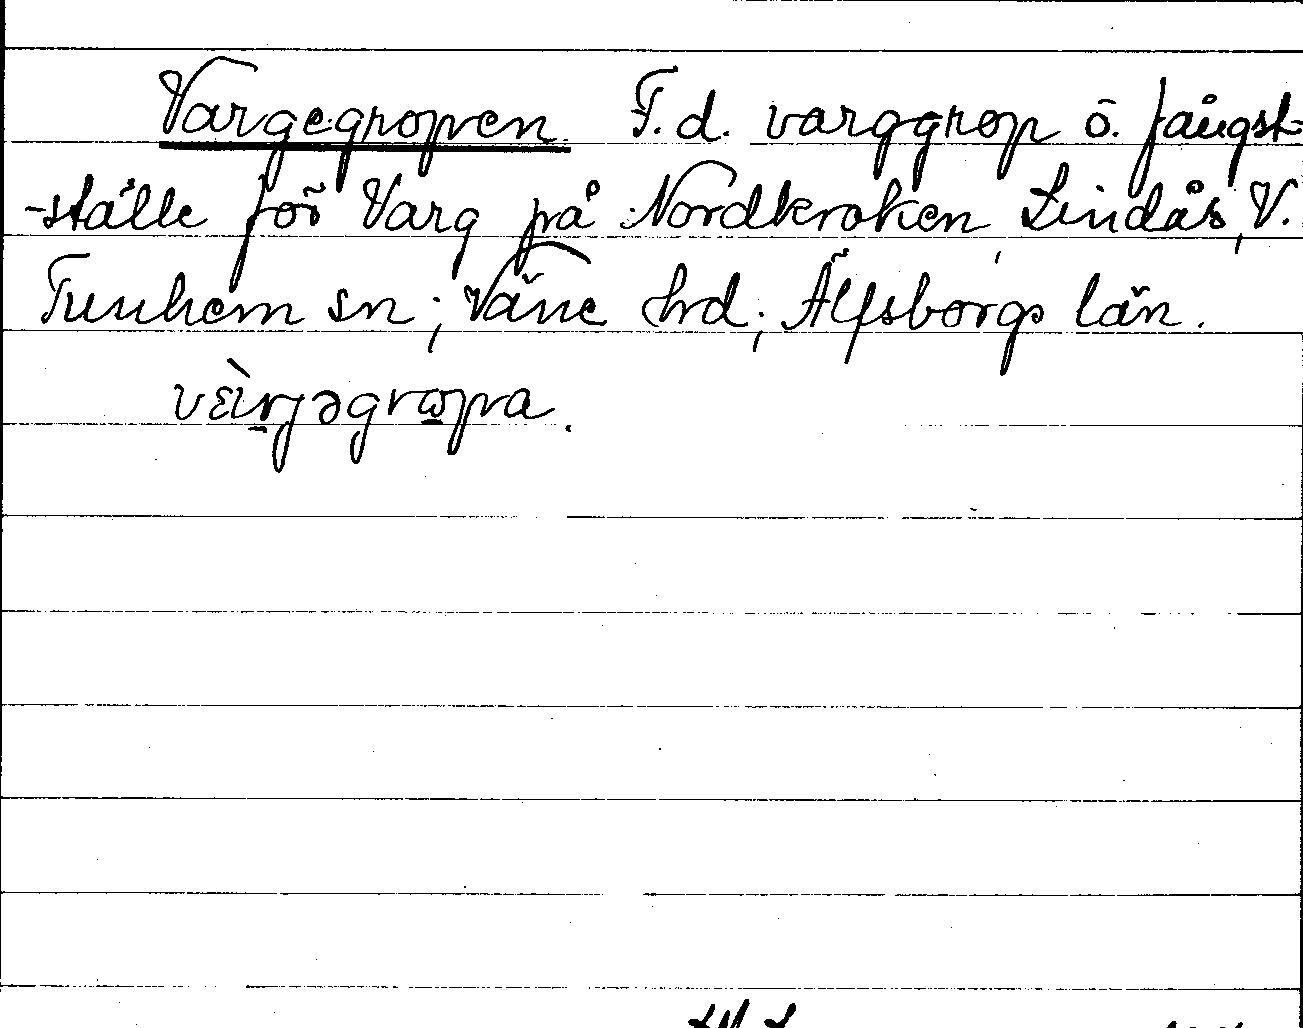 Vargegropen. F.d. varggrop o. fångst-
-ställe för Varg på Nordkroken, Lindås, V.
Tunhem sn; Väne hrd; Älfsborgs län.
vɛ̀ı̣rjəgrωpa.